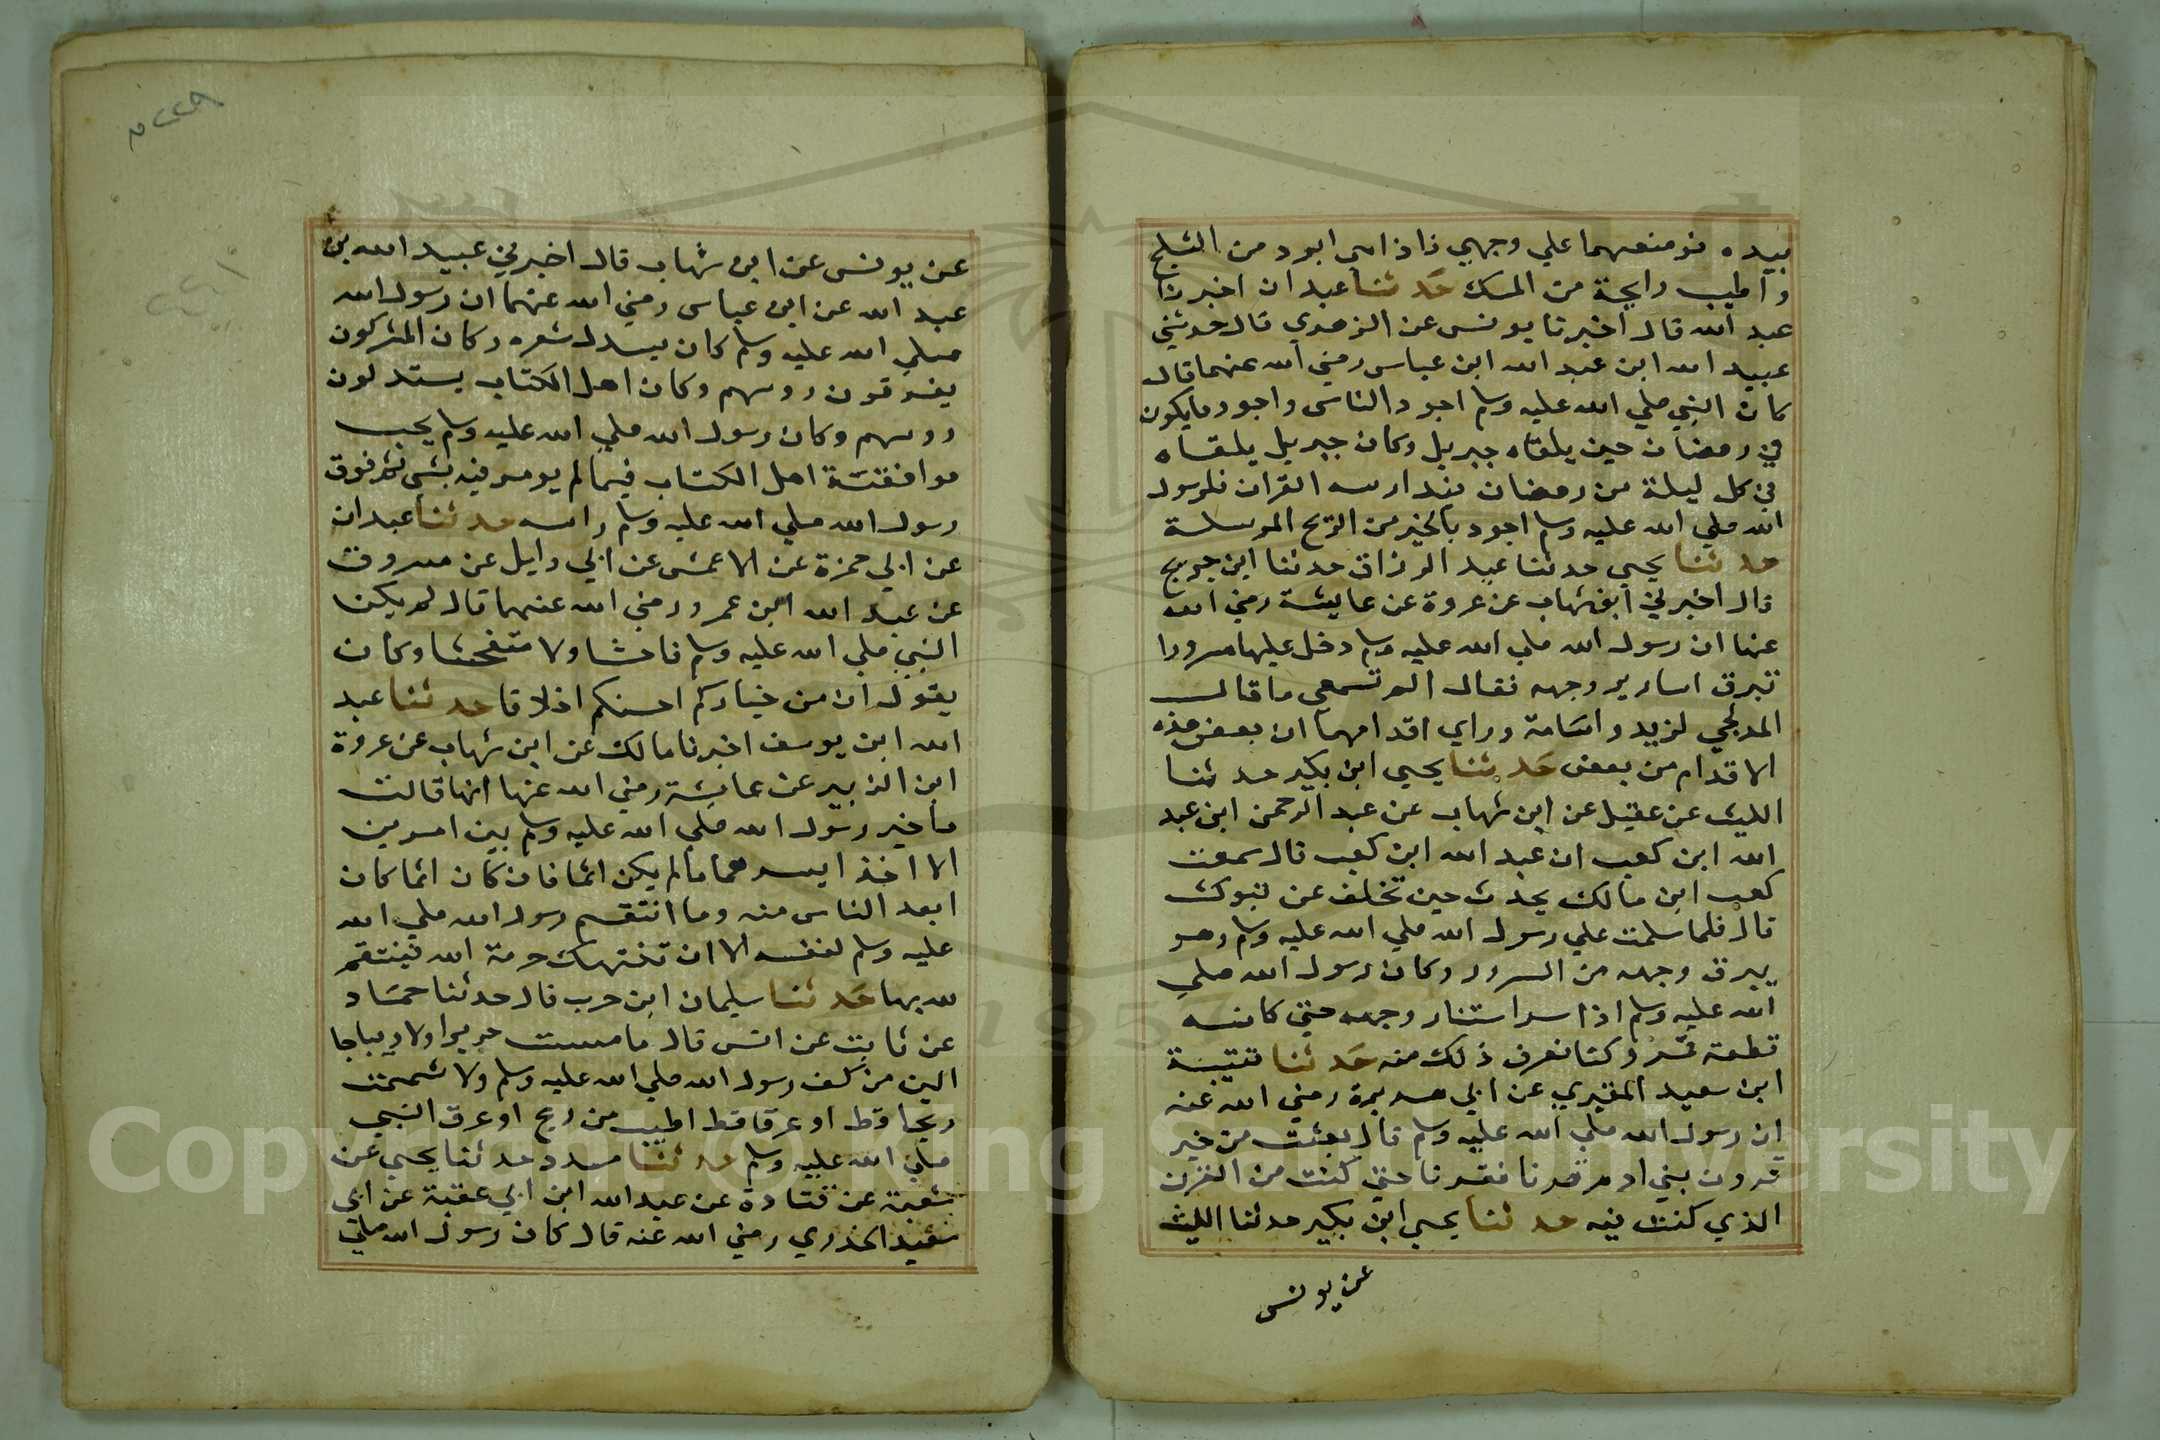 بيده فوضعهما علي وجهي فاذا هي ابرد من الثلج
واطيب رايحة من المسك حدثنا عبدان اخبرنا
عبد الله قال اخبرنا يونس عن الزهري قال حدثني
عبيد الله ابن عبد الله ابن عباس رضي الله عنهما قال
كان النبي صلي الله عليه وسلم اجود الناس واجود مايكون
في رمضان حين يلقاه جبريل وكان جبريل يلقاه
في كل ليلة من رمضان فيدارسه القران فلرسول
الله صلي الله عليه وسلم اجود بالخير من الريح المرسلة
حدثنا يحيي حدثنا عبد الرزاق حدثنا ابن جريج
قال اخبرني ابن شهاب عن عروة عن عايشة رضي الله
عنها ان رسول الله صلي الله عليه وسلم دخل عليها مسرورا
تبرق اسارير وجهه فقال الم تسمعي ما قال
المدلجي لزيد واسامة وراي اقدامهما ان بعض هذه
الاقدام من بعض حدثنا يحيي ابن بكير حدثنا
الليث عن عقيل عن ابن شهاب عن عبد الرحمن ابن عبد
الله ابن كعب ان عبد الله ابن كعب قال سمعت
كعب ابن مالك يحدث حين تخلف عن تبوك
قال فلما سلمت علي رسول الله صلي الله عليه وسلم وهو
يبرق وجهه من السرور وكان رسول الله صلي
الله عليه وسلم اذا سر استنار وجهه حتي كانه
قطعة قمر وكنا نعرف ذلك منه حدثنا قتيبة
ابن سعيد المقبري عن ابي هريرة رضي الله عنه
ان رسول الله صلي الله عليه وسلم قال بعثت من خير
قرون بني ادم قرنا فقرنا حتي كنت من القرن
الذي كنت فيه حدثنا يحيي ابن بكير حدثنا الليث
عن يونس
٥٢٢٩
٢٢١
عن يونس عن ابن شهاب قال اخبرني عبيد الله بن
عبد الله عن ابن عباس رضي الله عنهما ان رسول الله
صلي الله عليه وسلم كان يسدل شعره وكان المشركون
يفرقون روسهم وكان اهل الكتاب يستدلون
روسهم وكان رسول الله صلي الله عليه وسلم يحب
موافقتة اهل الكتاب فيما لم يومر فيه بشي ثم فرق
رسول الله صلي الله عليه وسلم راسه حدثنا عبدان
عن ابي حمزة عن الاعمش عن ابي وايل عن مسروق
عن عبد الله ابن عمرو رضي الله عنهما قال لم يكن
النبي صلي الله عليه وسلم فاحشا ولا متفحشا وكان
يقول ان من خياركم احسنكم اخلاقا حدثنا عبد
الله ابن يوسف اخبرنا مالك عن ابن شهاب عن عروة
ابن الزبير عن عايشة رضي الله عنها انها قالت
ما خير رسول الله صلي الله عليه وسلم بين امرين
الا اخذ ايسرهما مالم يكن اثما فان كان اثما كان
ابعد الناس منه وما انتقم رسول الله صلي الله
عليه وسلم لنفسه الا ان تنتهك حرمة الله فينتقم
لله بها حدثنا سليمان ابن حرب قال حدثنا حماد
عن ثابت عن انس قال ما مسست حريرا ولا ديباجا
الين من كف رسول الله صلي الله عليه وسلم ولا شممت
ريحا قط او عرقا قط اطيب من ريح او عرق النبي
صلي الله عليه وسلم حدثنا مسدد حدثنا يحيي عن
شعبة عن قتادة عن عبد الله ابن ابي عقبة عن ابي
سعيد الخدري رضي الله عنه قال كان رسول الله صلي